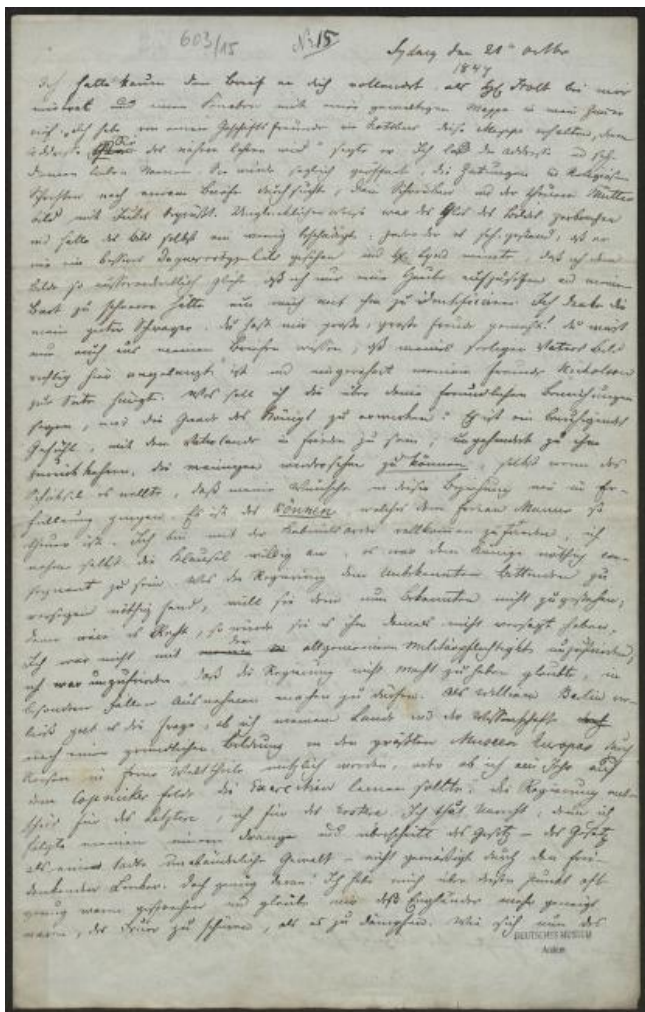 603/15 No 15
Sydney den 21n October
1847
Ich hatte kaum den Brief an dich vollendet, als bei mir
und einen Knaben mit einer Mappe in mein Zimmer
ich habe von einem Geschäftsfreunde in diese Mappe erhalten, deren
Addresse der nähere lehren wird" sagte er. Ich las die Addresse und sah
deinen lieben Namen. Sie wurde sogleich geöffnet, die Zeitungen und Religiösen
Schriften nach einem Briefe durchsucht, dem Schreiber und der theuren Mutter
Bild mit Jubel begrüßt. Unglücklicher Weise war das Glas des Bildes zerbrochen
und hatte das Bild selbst ein wenig beschädigt; jeder der es sah, gestand, daß er
nie ein besseres gesehen und meinte, daß ich dem
Bilde so außerordentlich gliche, daß ich nur eine Haube aufzusetzen und meinen
Bart zu scheeren hätte um mich mit ihm zu identificiren. Ich danke dir
mein guter Schwager, du hast mir große, große Freude gemacht! du wirst
nun auch aus meinen Briefen wissen, daß meines seeligen Vaters Bild
richtig hier angelangt ist und eingerahmt meinem Freunde Nicholson
zur Seite hängt. Was soll ich dir über deine freundlichen Bemühungen
sagen, mir die Gnade des Königs zu erwerben? Es ist ein beruhigendes
Gefühl, mit dem Vaterlande in Frieden zu sein, ungehindert zu ihm
zurückkehren, die meinigen wiedersehen zu können, selbst wenn das
Schicksal es wollte, daß meine Wünsche in dieser Beziehung nie in Er-
füllung gingen. Es ist das können, welches dem freien Manne so
theuer ist. Ich bin mit der Kabinetsorder vollkommen zufrieden, ich
nehme selbst die Klausel willig an, es war dem Könige nöthig con-
sequent zu sein. Was die Regierung dem Unbekannten Bittenden zu
versagen nöthig fand, will sie dem nun Bekannten nicht zugestehen;
denn wäre es Recht, so würde sie es ihm damals nicht versagt haben.
Ich war nicht mit der allgemeinen Militärpflichtigkeit unzufrieden,
ich war unzufrieden, daß die Regierung nicht Macht zu haben glaubte, in
besondern Fällen Ausnahmen machen zu dürfen. Als William Berlin ver-
ließ galt es die Frage, ob ich meinem Lande und der Wissenschaft
nach einer gründlichen Bildung in den größten Museen Europas durch
Reisen in ferne Welttheile nützlich werden, oder ob ich ein Jahr auf
dem Copnicker Felde die Exercitien lernen sollte: die Regierung ent-
schied für das Letztere, ich für das Erstere. Ich that Unrecht, denn ich
folgte meinem innern Drange und überschritt das Gesetz – das Gesetz
als eine todte unabänderliche Gewalt – nicht gemäßigt durch den frei-
denkenden Lenker. Doch genug davon! Ich habe mich über diesen Punkt oft
genug warm gesprochen und glaube daß Engländer mehr geneigt
waren, das Feuer zu schüren, als es zu dämpfen. Wie sich nun das
DEUTSCHES MUSEUM
Archiv